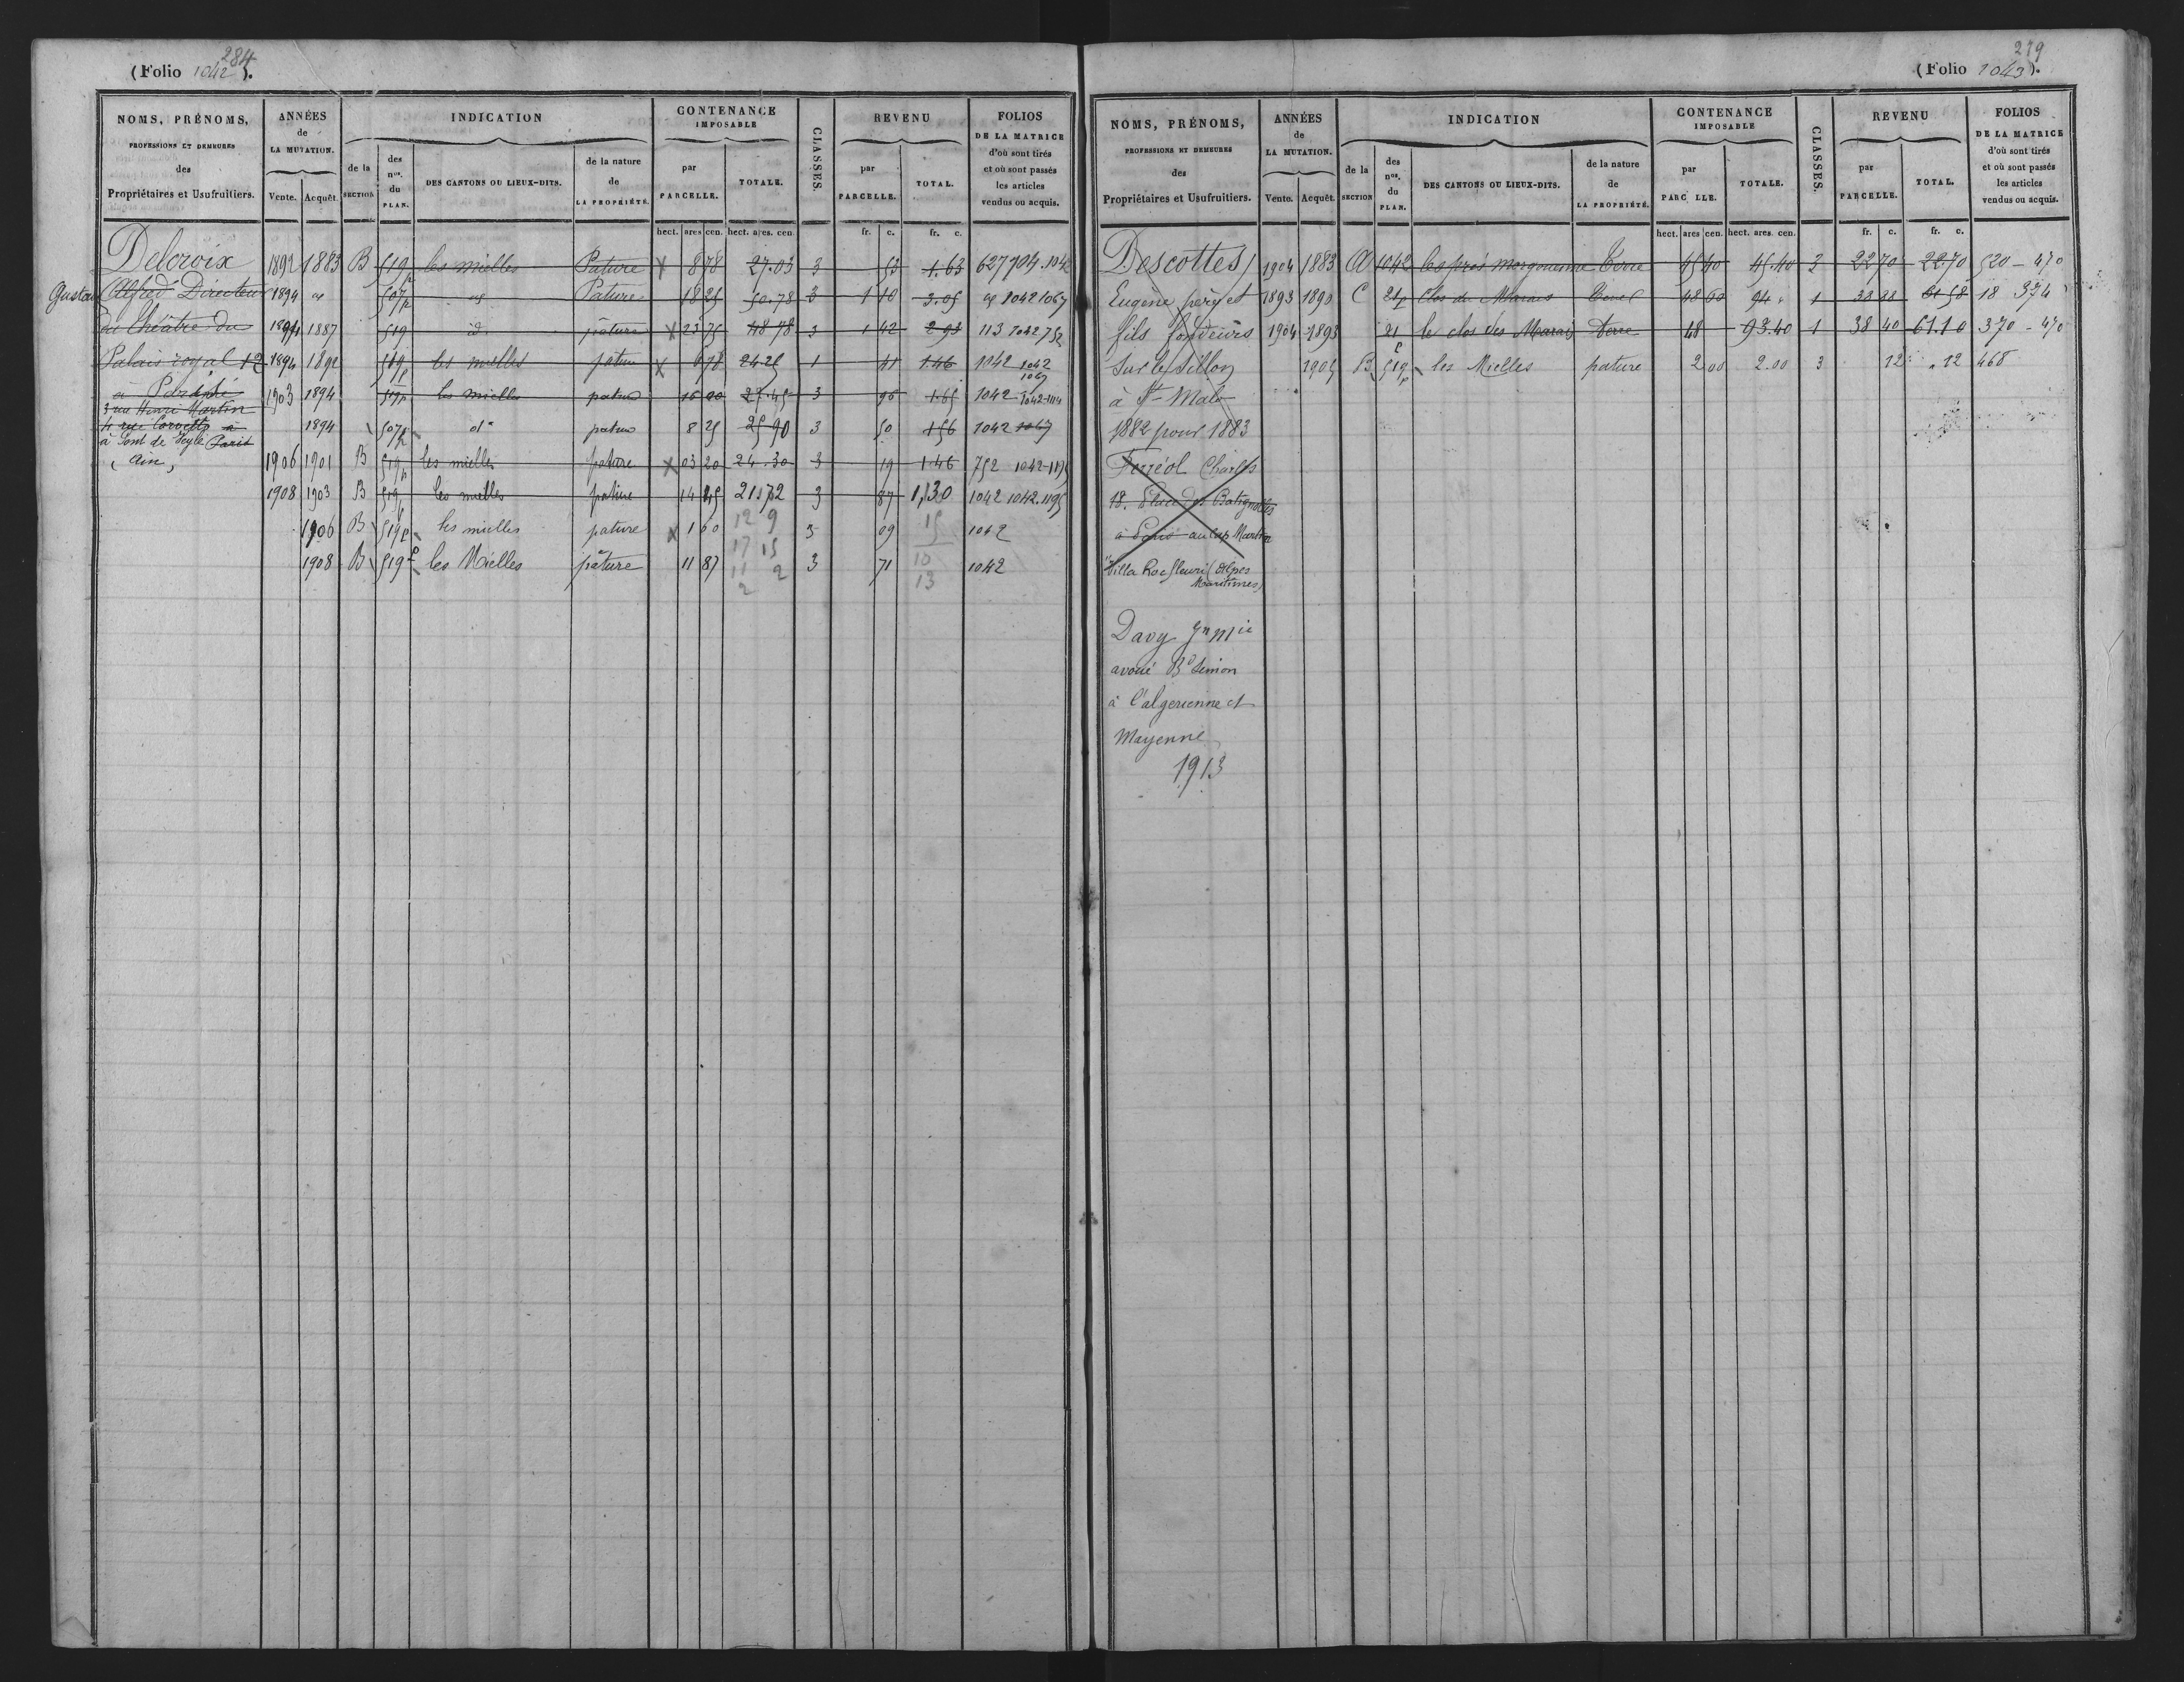 284
(Folio 1042).
NOMS, PRÉNOMS, PROFESSIONS ET DEMEURES des Propriétaires et Usufruitiers.
ANNÉES de LA MUTATION. Vente. Acquêt.
INDICATION de la SECTION des nos. du PLAN. DES CANTONS OU LIEUX-DITS. de la nature de LA PROPRIÉTÉ.
CONTENANCE IMPOSABLE par PARCELLE. TOTALE.
CLASSES.
REVENU par PARCELLE. TOTAL.
FOLIOS DE LA MATRICE d'où sont tirés et où sont passés les articles vendus ou acquis.
hect. ares cen. hect. ares. cen. fr. c. fr. c.
Delcroix 1892 1883 B 519p les mielles Pature X 8 78 27.03 3 53 1.63 627 704.1042
Gustave Alfred Directeur 1894 507p Pature 18 25 50.78 3 1 10 3.05 1042 1067
du théâtre du 1894 1887 519 id. pature X 23 75 48 78 3 1 42 2 93 113 1042.752
Palais royal 12 1894 1892 519p les mielles pature X 6 78 24.25 1 41 1.46 1042 1042 1067
à Paramé 1903 1894 519p les mielles pature 16 00 27.45 3 96 1.65 1042 1042-1114
3 rue Henri Martin
4 rue Corvetto à 1894 507p d° pature 8 25 25 90 3 50 1 56 1042 1067
à Pont de Veyle Paris
(Ain) 1906 1901 B 519p les mielles pature X 03 20 24.30 3 19 1.46 752 1042-1195
1908 1903 B 519p les mielles pature 14 45 21 572 3 87 1,30 1042 1042.1195
1906 B 519p les mielles pature X 1 60 12 9 3 09 15 1042
17 15
1908 B 519p les Mielles pâture 11 87 11 2 3 71 10 1042
2 13
219
(Folio 1043).
NOMS, PRÉNOMS, PROFESSIONS ET DEMEURES des Propriétaires et Usufruitiers.
ANNÉES de LA MUTATION. Vente. Acquêt.
INDICATION de la SECTION des nos. du PLAN. DES CANTONS OU LIEUX-DITS. de la nature de LA PROPRIÉTÉ.
CONTENANCE IMPOSABLE par PARCELLE. TOTALE.
CLASSES.
REVENU par PARCELLE. TOTAL.
FOLIOS DE LA MATRICE d'où sont tirés et où sont passés les articles vendus ou acquis.
hect. ares cen. hect. ares. cen. fr. c. fr. c.
Descottes 1904 1883 A 1042 les prés morgouenne Terre 45 40 45.40 2 22 70 22.70 520 - 470
Eugène père et 1893 1890 C 21p Clos du Marais Terre 48 60 94 " 1 38 88 61 58 18 374
fils fondeurs 1904 1893 21p le clos des Marais terre 48 93.40 1 38 40 61.10 370 - 470
sur le Sillon 1905 B 519p les Mielles pature 2 00 2.00 3 12 " 12 468
à St-Malo
1882 pour 1883
Ferréol Charles
18. Place des Batignolles
à Paris au cap Martin
"Villa Rocfleuri (Alpes Maritimes)
Davy
avoué Bd
à l'algerienne et
Mayenne
1913